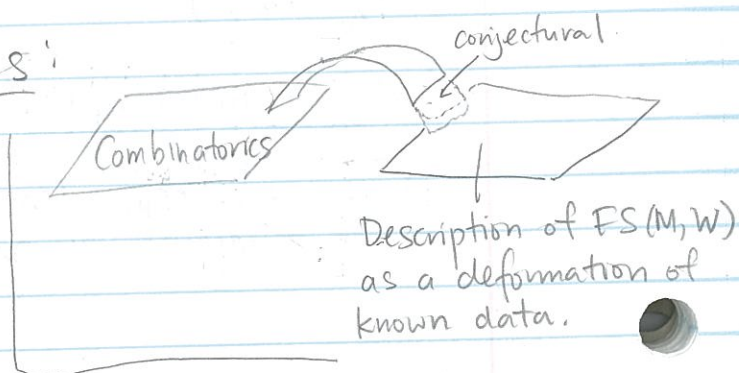 s:
conjectural.
Combinatorics
Description of FS(M,W)
as a deformation of
known data.